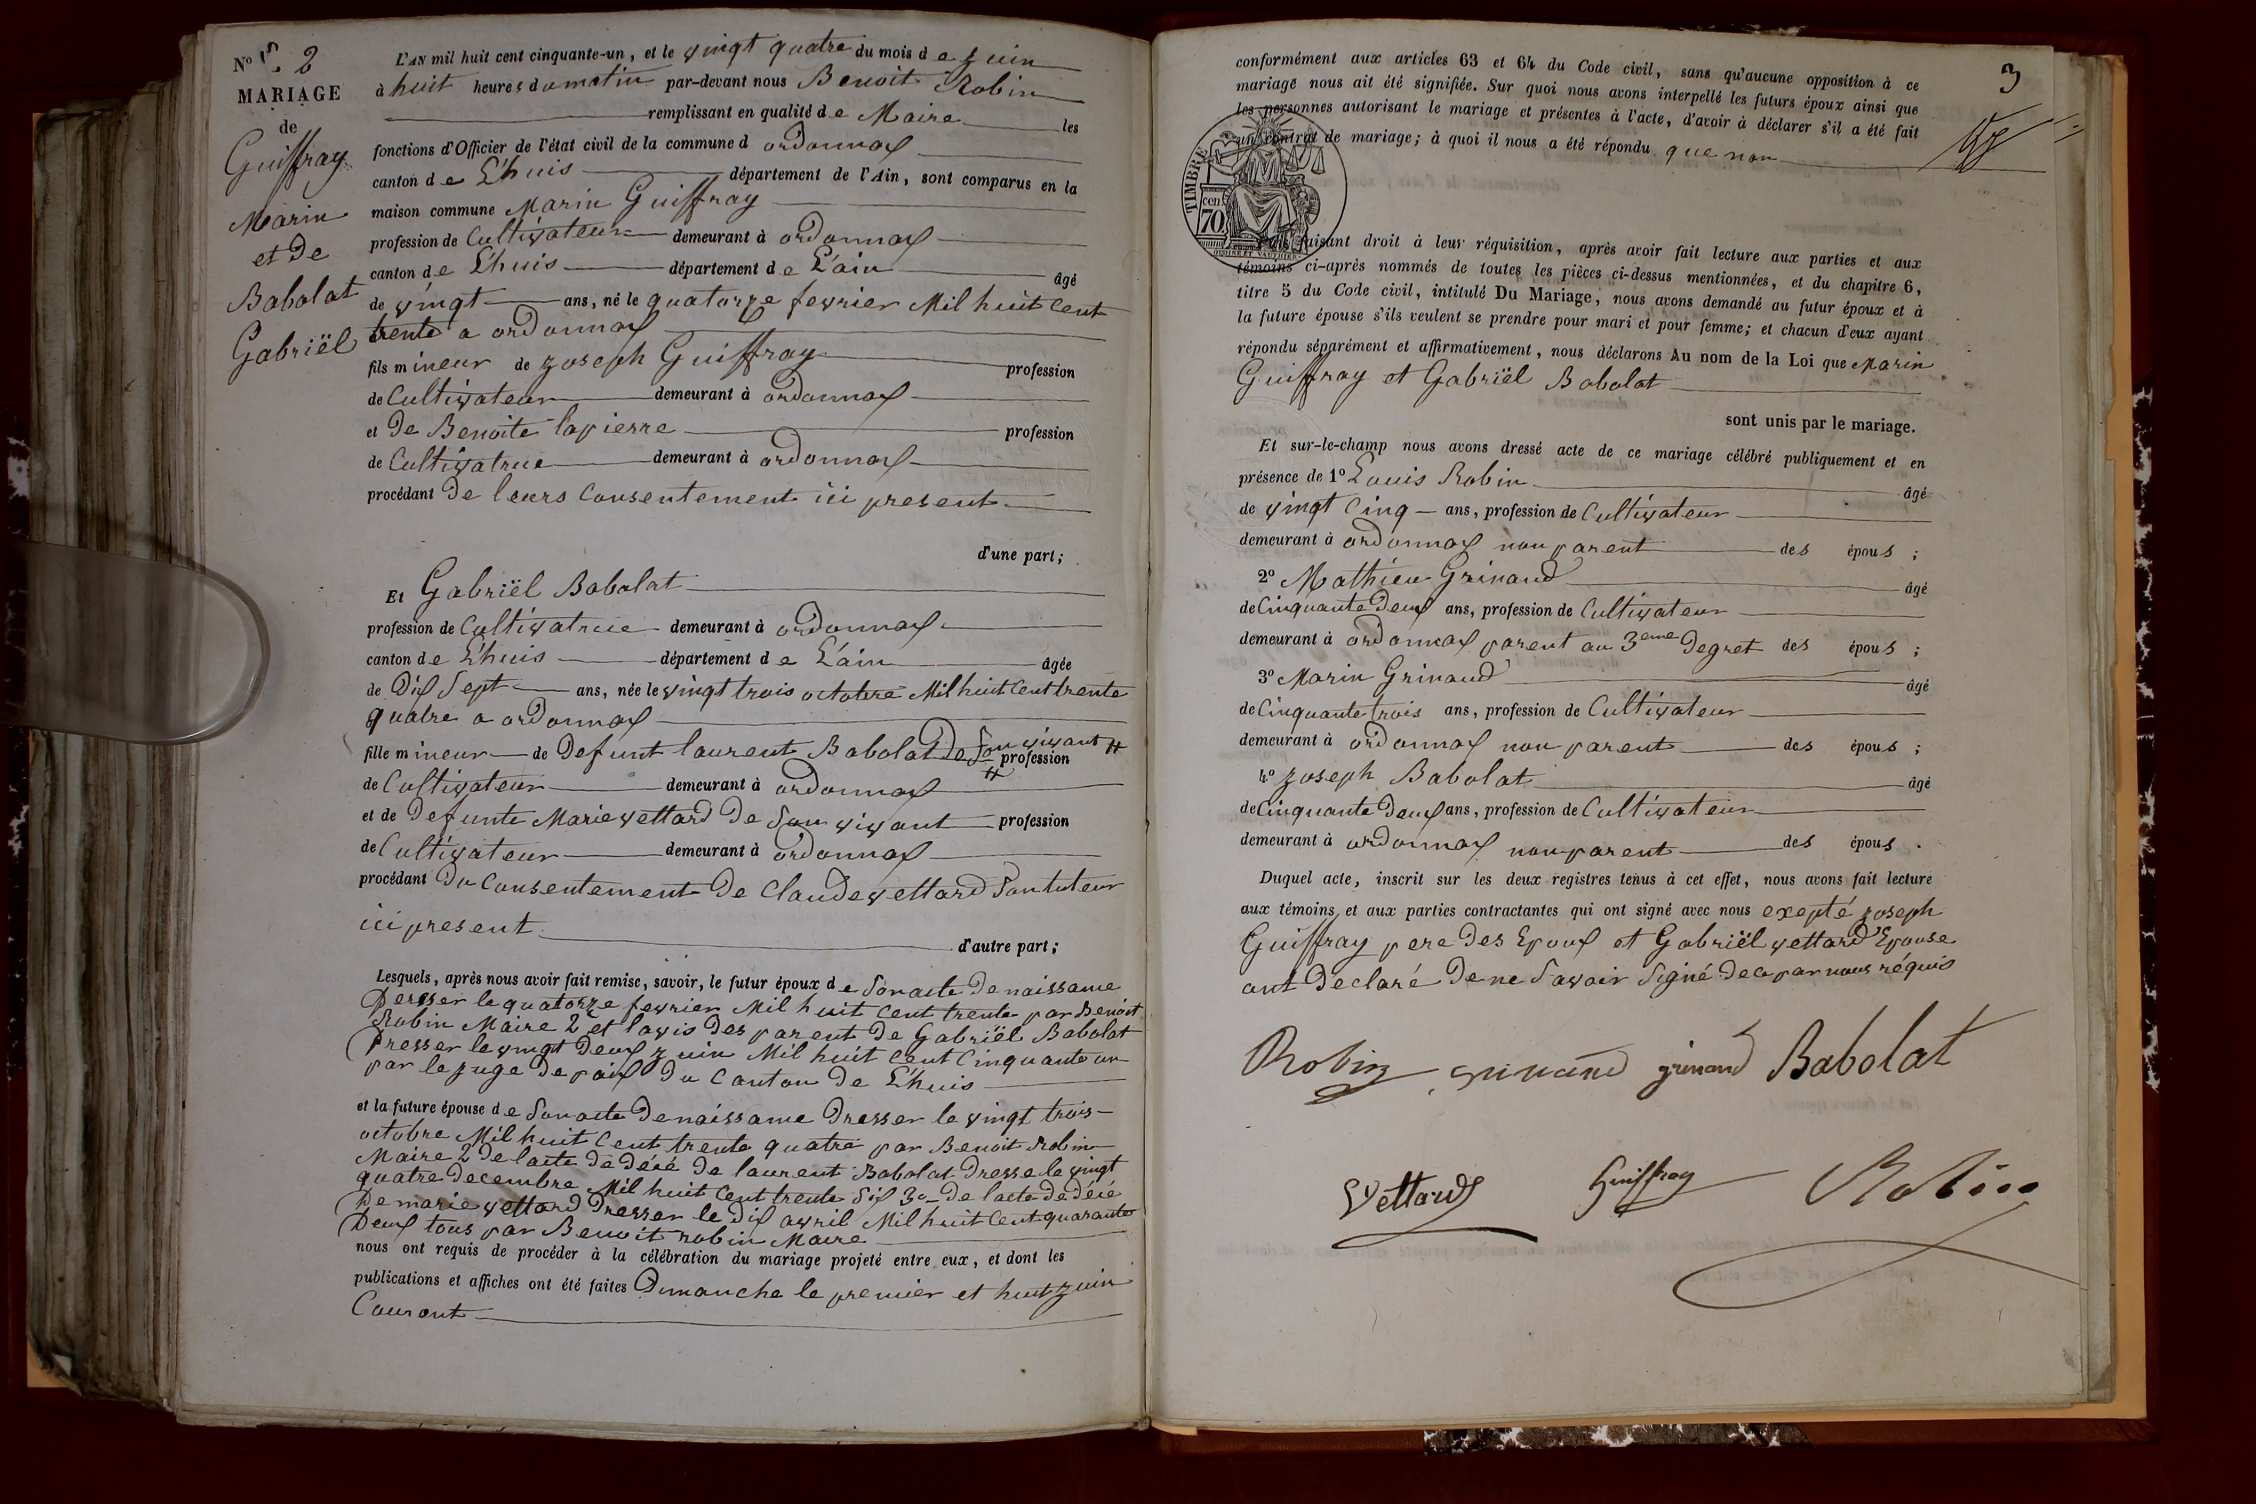 No 2
MARIAGE
de
Guiffray
Marin
et de
Babolat
Gabriël
L'AN mil huit cent cinquante-un, et le vingt quatre du mois de juin
à huit heures du matin par-devant nous Benoit Robin
remplissant en qualité de Maire les
fonctions d'Officier de l'état civil de la commune d ordonnax
canton de L'huis département de l'Ain, sont comparus en la
maison commune Marin Guiffray
profession de Cultivateur demeurant à ordonnax
canton de L'huis département de L'ain âgé
de vingt ans, né le quatorze fevrier Mil huit Cent
trente a ordonnax
fils mineur de Joseph Guiffray profession
de Cultivateur demeurant à ordonnax
et de Benoite lapierre profession
de Cultivatrice demeurant à ordonnax
procédant de leurs Consentement ici present
d'une part;
Et Gabriël Babolat
profession de Cultivatrice demeurant à ordonnax
canton de L'huis département de L'ain âgée
de Dix Sept ans, née le vingt trois octobre Mil huit Cent trente
quatre a ordonnax
fille mineur de Defunt laurent Babolat De Son vivant
profession
de Cultivateur demeurant à ordonnax
et de defunte Marie vettard De Son vivant profession
de Cultivateur demeurant à ordonnax
procédant Du Consentement De Claude vettard Son tuteur
ici present
d'autre part;
Lesquels, après nous avoir fait remise, savoir, le futur époux de Son acte De naissance
Dresser le quatorze fevrier Mil huit Cent trente par Benoit
Robin Maire 2 et lavis des parent de Gabriël Babolat
Dresser le vingt Deux Juin Mil huit Cent Cinquante un
par le Juge De paix Du Canton de L'huis
et la future épouse de Son acte De naissance Dresser le vingt trois
octobre Mil huit Cent trente quatre par Benoit Robin
Maire 2 De lacte de décé de laurent Babolat Dresse le vingt
quatre decembre Mil huit Cent trente Six 3o De lacte de décé
De marie vettard Dresser le Dix avril Mil huit Cent quarante
Deux tous par Benoit robin Maire
nous ont requis de procéder à la célébration du mariage projeté entre eux, et dont les
publications et affiches ont été faites Dimanche le premier et huit juin
Courant
3
conformément aux articles 63 et 64 du Code civil, sans qu'aucune opposition à ce
mariage nous ait été signifiée. Sur quoi nous avons interpellé les futurs époux ainsi que
les personnes autorisant le mariage et présentes à l'acte, d'avoir à déclarer s'il a été fait
un contrat de mariage; à quoi il nous a été répondu que non
TIMBRE
cen
70
faisant droit à leur réquisition, après avoir fait lecture aux parties et aux
témoins ci-après nommés de toutes les pièces ci-dessus mentionnées, et du chapitre 6,
titre 5 du Code civil, intitulé Du Mariage, nous avons demandé au futur époux et à
la future épouse s'ils veulent se prendre pour mari et pour femme; et chacun d'eux ayant
répondu séparément et affirmativement, nous déclarons Au nom de la Loi que Marin
Guiffray et Gabriël Babolat
sont unis par le mariage.
Et sur-le-champ nous avons dressé acte de ce mariage célébré publiquement et en
présence de 1o Louis Robin âgé
de vingt Cinq ans, profession de Cultivateur
demeurant à ordonnax non parent des épous;
2o Mathieu Grinand âgé
de Cinquante Deux ans, profession de Cultivateur
demeurant à ordonnax parent au 3eme Degret des épous;
3o Marin Grinand âgé
de Cinquante trois ans, profession de Cultivateur
demeurant à ordonnax non parent des épous;
4o Joseph Babolat âgé
de Cinquante Deux ans, profession de Cultivateur
demeurant à ordonnax non parent des épous.
Duquel acte, inscrit sur les deux registres tenus à cet effet, nous avons fait lecture
aux témoins et aux parties contractantes qui ont signé avec nous exepté Joseph
Guiffray pere Des Epoux et Gabriël vettard Epouse
ont Déclaré De ne Savoir Signé de ce par nous réquis
Robin grinand grinand Babolat
Vettard Guiffray Robin